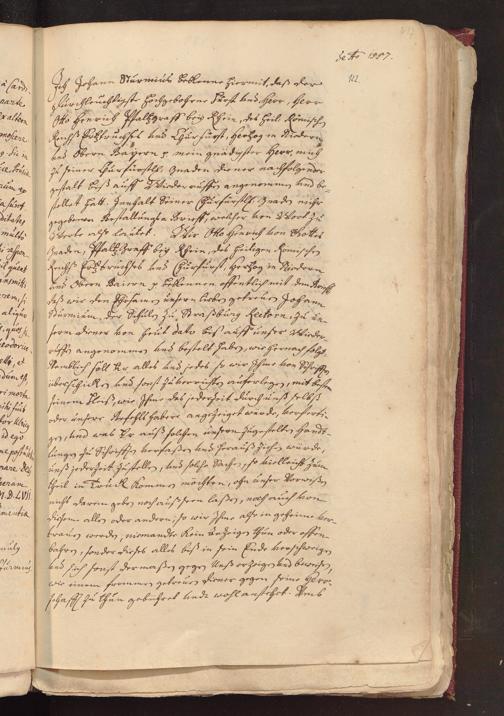 de Ao 1557.
Ich Johann Sturmius bekenne hiermit, daß der
durchleuchtigste Hochgebohrne Fürst und Herr, Herr
Otto Henrich Pfaltzgraff bey Rhein, des Heil. Römischen
Reichs Ertztruchses und Churfürst, Hertzog in Niedern
und Obern Bayern p mein gnädigster Herr, mich
zu seiner Churfürstl. Gnaden diener nachfolgender
gestalt biß auff Wiederruffen angenommen und be-
stellet hatt. Innhalt seiner Churfürstl. Gnaden mihr
gegebenen Bestallungs Brieff, welcher von Wort zu
Worte also lautet. Wir Otto Henrich von Gottes
Gnaden, Pfaltzgraff bey Rhein, des Heiligen Römischen
Reichs Ertztruchses und Churfürst, Hertzog in Niedern
und Obern Baiern p bekennen offentlich mit dem Brieff
daß wir den Ehrsamen unsern lieben getreuen Johann
Sturmium, der Schulen zu Straßburg Rectorn, zu un-
serm diener von heut dato biß auff unser Wieder-
ruffen angenommen und bestelt haben, wie hernach folgt.
Nemblich soll Er alles und jedes so wir Ihme von Schrifften
überschicken und sonst zu verrichten aufferlegen, mit bestem
seinem Fleiß wie Ihme das jederzeit durch uns selbst
oder unsere Befelchhabere angezeiget würde, verferti-
gen, und was Er auß solchen unsern zugestelten Hand-
lungen zu Schrifften verfassen und herauß ziehen würde,
uns jederzeit zustellen, und solche Sache, so vielleicht zum
theil in Truck kommen möchten, ohn unser Vorwissen
nicht darvon geben noch auß lassen, noch auch von
diesem allen oder andern, so wir Ihme also in geheimb ver-
trauen werden, niemandts kein anzeigen thun oder offen-
bahren, sonder dieses alles biß in sein Ende verschweigen
und sich sonst dermaßen gegen Uns erzeigen und beweisen,
wie einem frommen getreuen diener gegen seine Herr-
schafft zu thun gebühret und wohl anstehet.